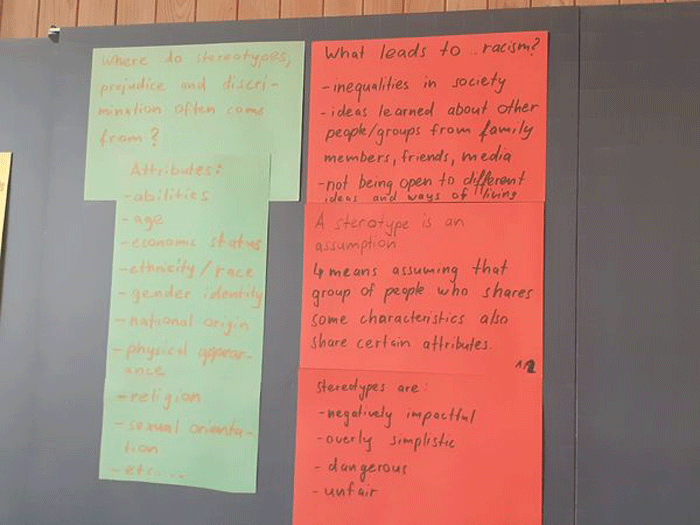 Where do stereotypes,
prejudice and discri-
mination often come
from?
Attributes:
-abilities
-age
-economic status
-ethnicity/race
-gender identity
-national origin
-physical appear-
ance
-religion
-sexual orienta-
tion
-etc....
What leads to ..racism?
-inequalities in society
-ideas learned about other
people/groups from family
members, friends, media
-not being open to different
ideas and ways of living
A sterotype is an
assumption
↳ means assuming that
group of people who shares
some characteristics also
share certain attributes.
stereotypes are:
-negatively impactful
-overly simplistic
-dangerous
-unfair